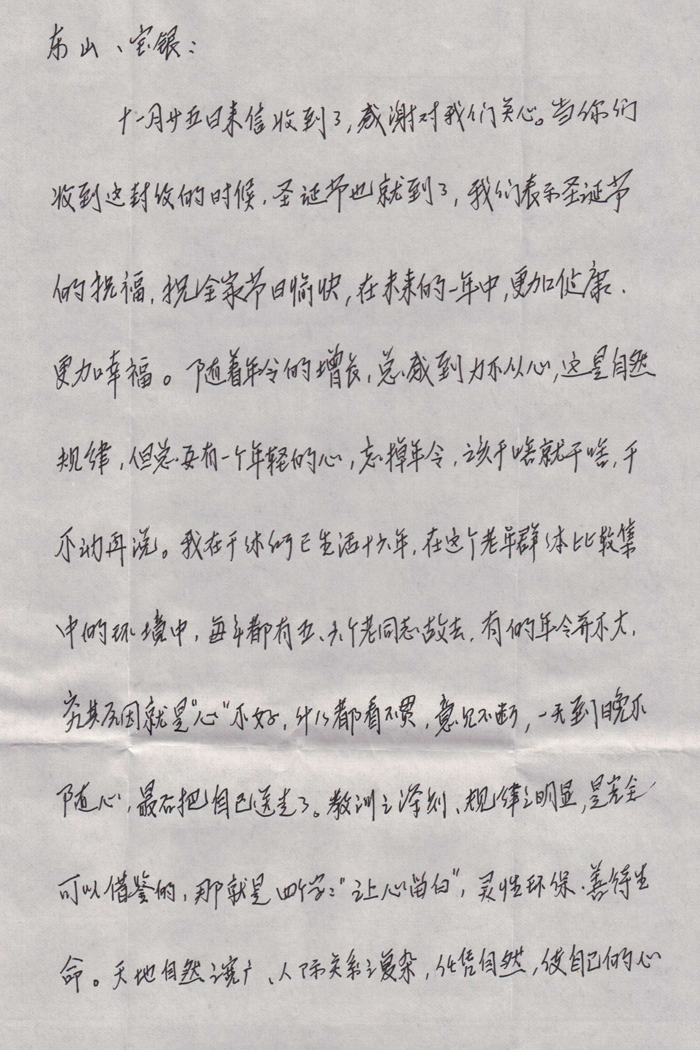 东山、宝银：
十一月廿五日来信收到了，感谢对我们关心。当你们
收到这封信的时候，圣诞节也就到了，我们表示圣诞节
的祝福，祝全家节日愉快，在未来的一年中，更加健康、
更加幸福。随着年令的增长，总感到力不从心，这是自然
规律，但总要有一个年轻的心，忘掉年令，该干啥就干啥，干
不动再说。我在干休所已生活十六年，在这个老年群体比较集
中的环境中，每年都有五、六个老同志故去，有的年令并不大，
究其原因就是“心”不好，什么都看不惯，意见不断，一天到晚不
随心，最后把自己送走了。教训之深刻、规律之明显，是完全
可以借鉴的，那就是四个字：“让心留白”，灵性环保、善待生
命。天地自然之宽广、人际关系之复杂，任凭自然，使自己的心